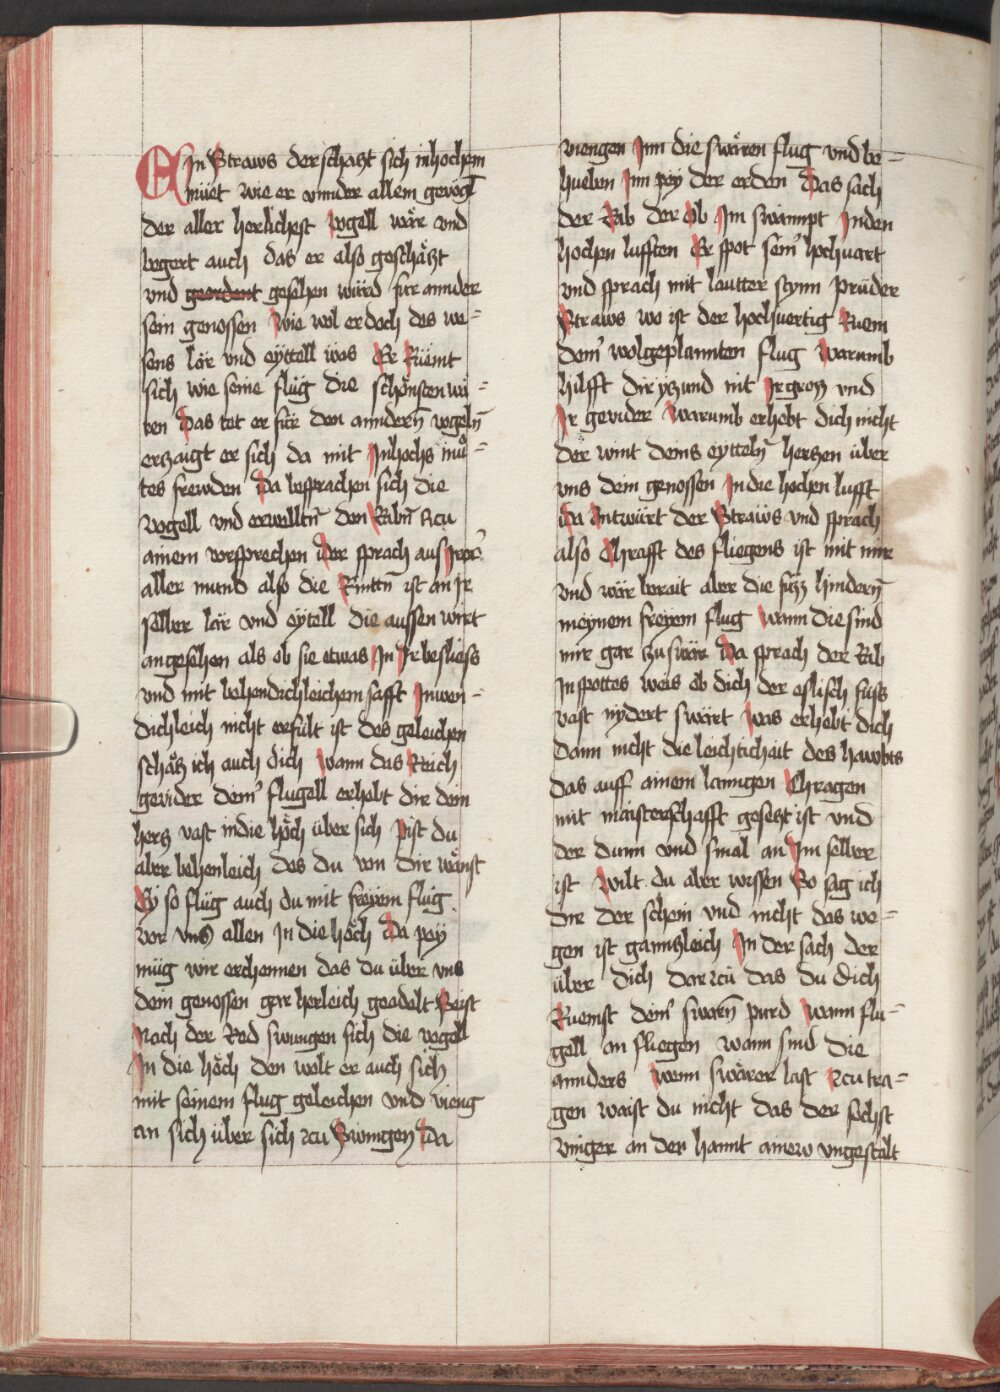 EIn Straws der schaczt sich in hochem
müet wie er vnnder allem gevögl
der aller herlichest vogell wär vnd
begert auch das er also geschäczt
vnd geordent gesehen würd fur annder
sein genossen Wie wol er doch des we-
sens lär vnd eyttell was Er Rüemt
sich wie seine flüg die schönsten wä-
ren Das tet er für den anndern̄ vogeln̄
erzaigt er sich da mit In hochs mů-
tes frewden Da besprachen sich die
vogell vnd erwellten̄ den Rabn̄ zcu
ainem vorsprechen Der sprach aus Irer
aller mund also die Rintten̄ ist an Ir
selber lär vnd eytell die aussen wirt
angesehen als ob sie etwas In Ir besliess
vnd mit behendichleichem safft Inwen-
dichleich nicht erfult ist des geleichen
schäcz ich auch dich Wann das Reich
gevider deiner flugell erhebt dir dein
hercz vast in die höch über sich Pist du
aber behenleich des du von dir wänst
Ey so flüg auch du mit freyem flug
vor vns allen In die höch Da pey
müg wir erchennen das du über vns
dein genossen gar herleich geadelt Seist
Nach der Red swungen sich die vogell
In die höch den wolt er auch sich
mit seinem flug geleichen vnd vieng
an sich über sich zcu Swingen Da
viengen Inn die swären flug vnd be-
hueben Inn pey der erden Das sach
der Rab der ob Im swampt In den
hochen lufften Er spot seiner hochuart
vnd sprach mit lautter stym pruder
Straws wo ist der hochvertig Ruem
deiner wolgeplannten flug Warumb
hilfft dir yczund nit Ir gros vnd
Ir gevider Warumb erhebt dich nicht
der wint deins eytteln̄ herczen über
vns dein genossen In die hochen lufft
Da Antwürt der Straüs vnd sprach
also Chrafft des fliegens ist mit mir
vnd wär berait aber die füzz hindern̄
meynem freyem flug Wann die sind
mir gar czu swär Da sprach der Rab
In spottes weis ob dich der eslisch fuss
vast nydert swärt Was erhebt dich
dann nicht die leichtichait des hawbts
das auff ainem lanngen Chragen
mit maisterschafft gesetzt ist vnd
der dunn vnd smal an Im selber
ist Wilt du aber wissen So sag ich
dir der schein vnd nicht das we-
gen ist gannczleich In der sach der
über dich dar zcu das du dich
Ruemst deiner swarn̄ purd Wann flu-
gell an fliegen wann sind die
annders Wenn swärer last zcu tra-
gen waist du nicht das der sechst
vinger an der hannt ainew vngestalt